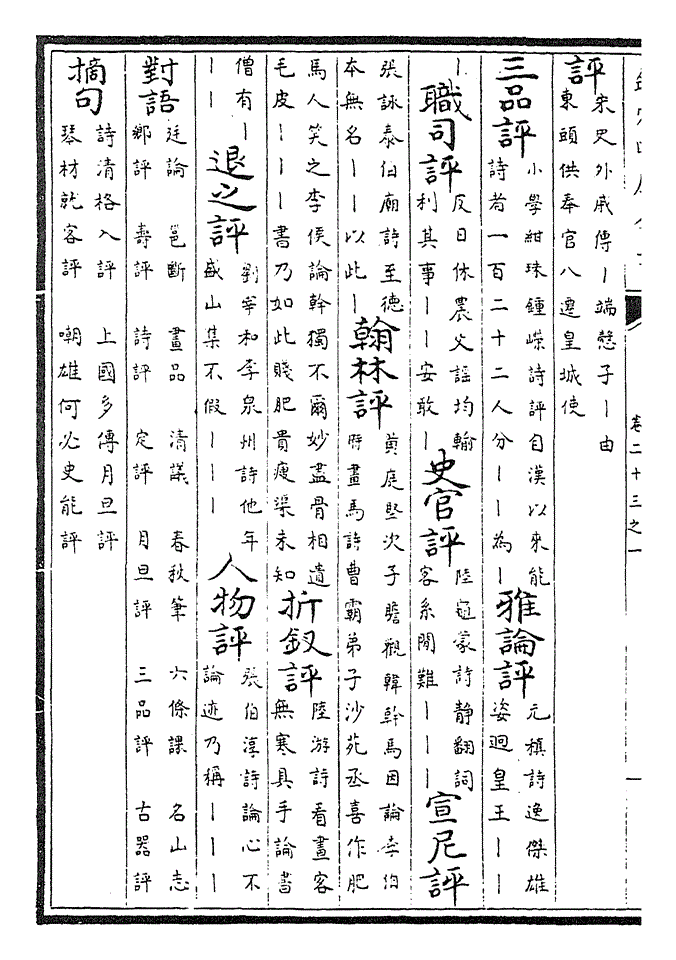 評 宋史外戚傳｜端愨子｜由東頭供奉官八遷皇城使
三品評 小學紺珠鍾嶸詩評自漢以來能詩者一百二十二人分｜｜為｜ 雅論評 元稹詩逸傑雄姿迥皇王｜｜
｜ 職司評 皮日休農父謠均輸利其事｜｜安敢｜ 史官評 陸龜蒙詩靜翻詞客系閒難｜｜｜ 宣尼評
張詠泰伯廟詩至德本無名｜｜以此｜ 翰林評 黃庭堅次子瞻觀韓幹馬因論李伯時畫馬詩曹霸弟子沙苑丞喜作肥
馬人笑之李侯論幹獨不爾妙盡骨相遺毛皮｜｜｜書乃如此賤肥貴瘦渠未知 折釵評 陸游詩看畫客無寒具手論書
僧有｜｜｜ 退之評 劉宰和李泉州詩他年盛山集不假｜｜｜ 人物評 張伯淳詩論心不論迹乃稱｜｜｜
對語 廷論 邕斷 畫品 清議 春秋筆 六條課 名山志
鄉評 壽評 詩評 定評 月旦評 三品評 古器評
摘句 詩清格入評 上國多傳月旦評
琴材就客評 嘲雄何必史能評
卷二十三之一
一